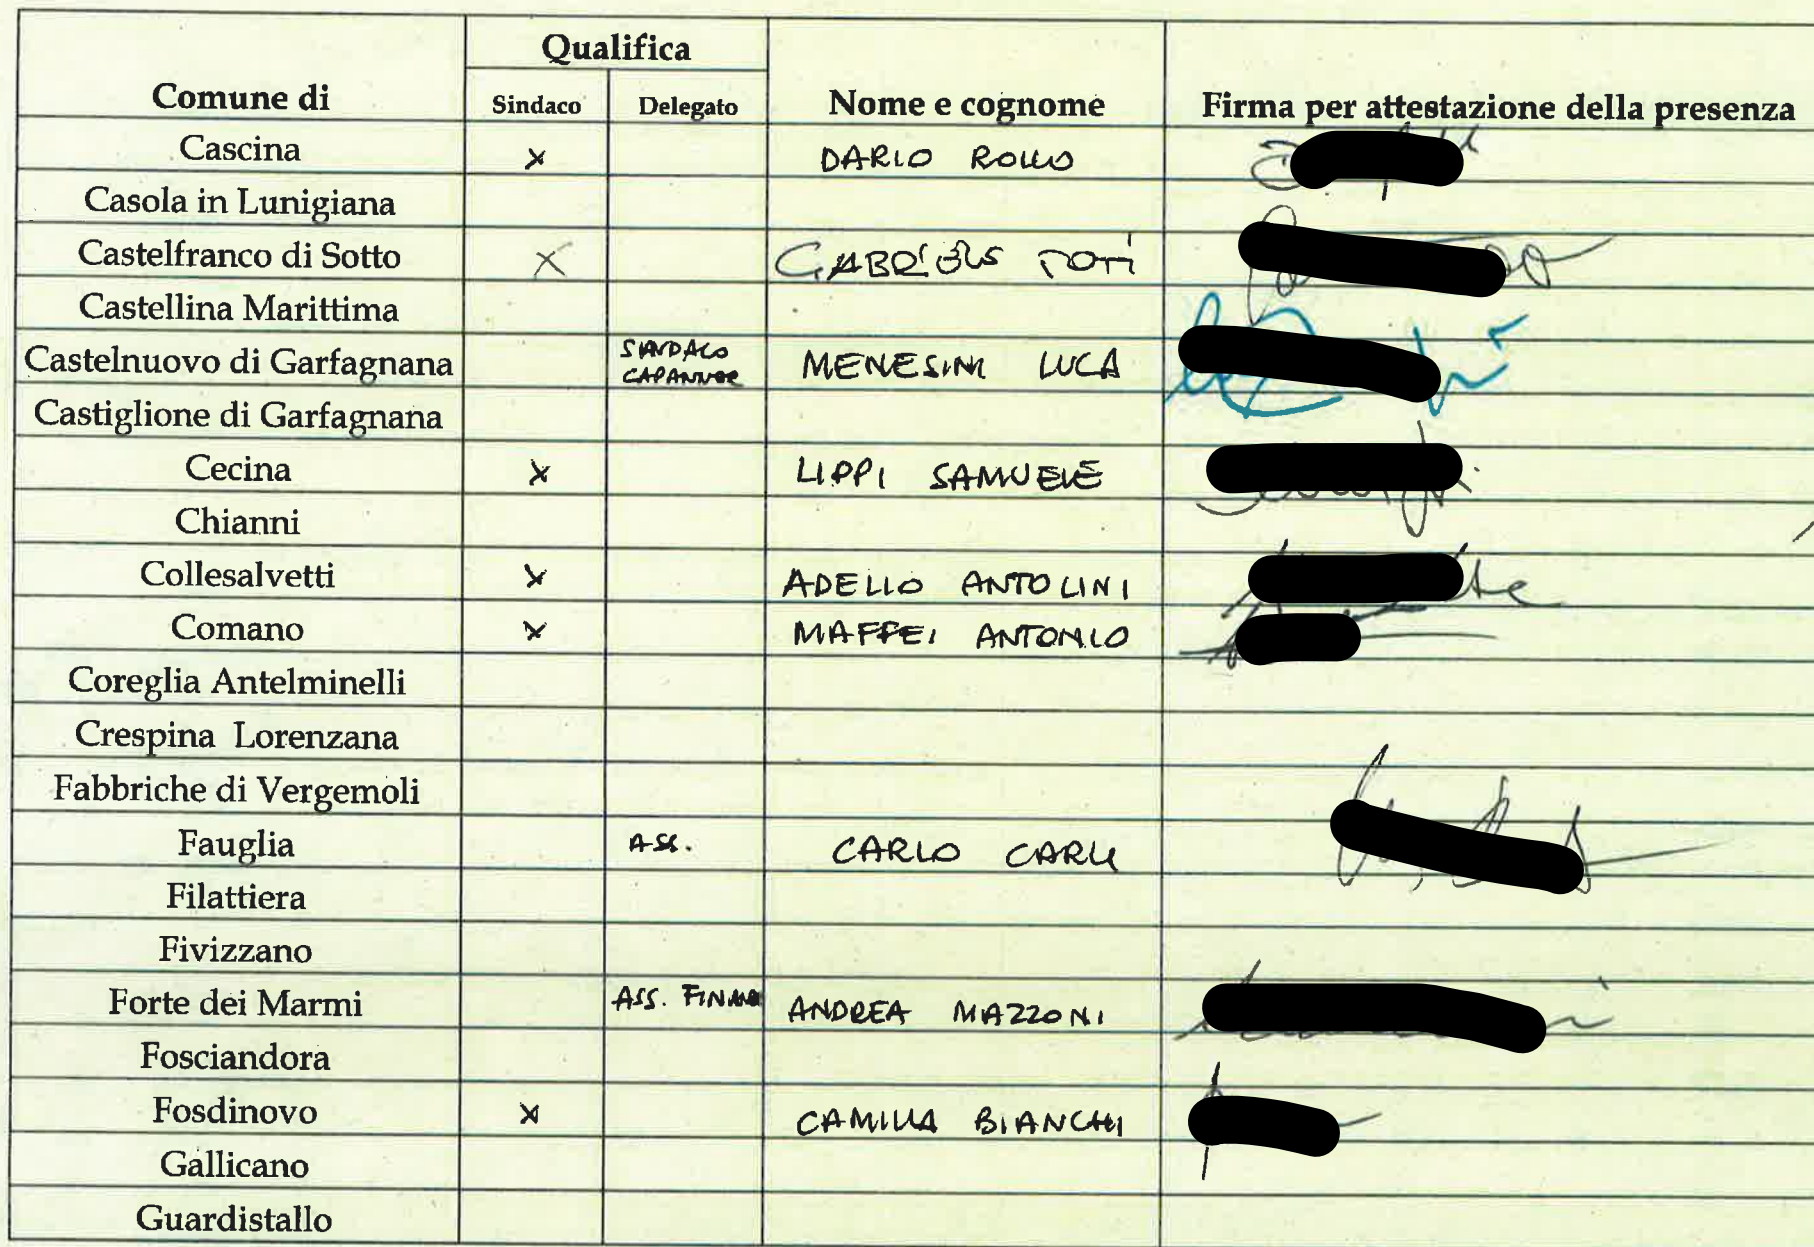 Qualifica
Comune di Sindaco Delegato Nome e cognome Firma per attestazione della presenza
Cascina x DARIO ROLLO
Casola in Lunigiana
Castelfranco di Sotto X GABRIELE TOTI
Castellina Marittima
Castelnuovo di Garfagnana SINDACO CAPANNOR MENESINI LUCA
Castiglione di Garfagnana
Cecina x LIPPI SAMUELE
Chianni
Collesalvetti x ADELIO ANTOLINI
Comano x MAFFEI ANTONIO
Coreglia Antelminelli
Crespina Lorenzana
Fabbriche di Vergemoli
Fauglia ASS. CARLO CARLI
Filattiera
Fivizzano
Forte dei Marmi ASS. ANDREA MAZZONI
Fosciandora
Fosdinovo x CAMILLA BIANCHI
Gallicano
Guardistallo